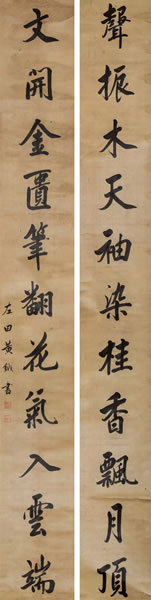 聲振木天袖染桂香飄月頂
文開金匱筆翻花氣入雲端
左田黄鉞書